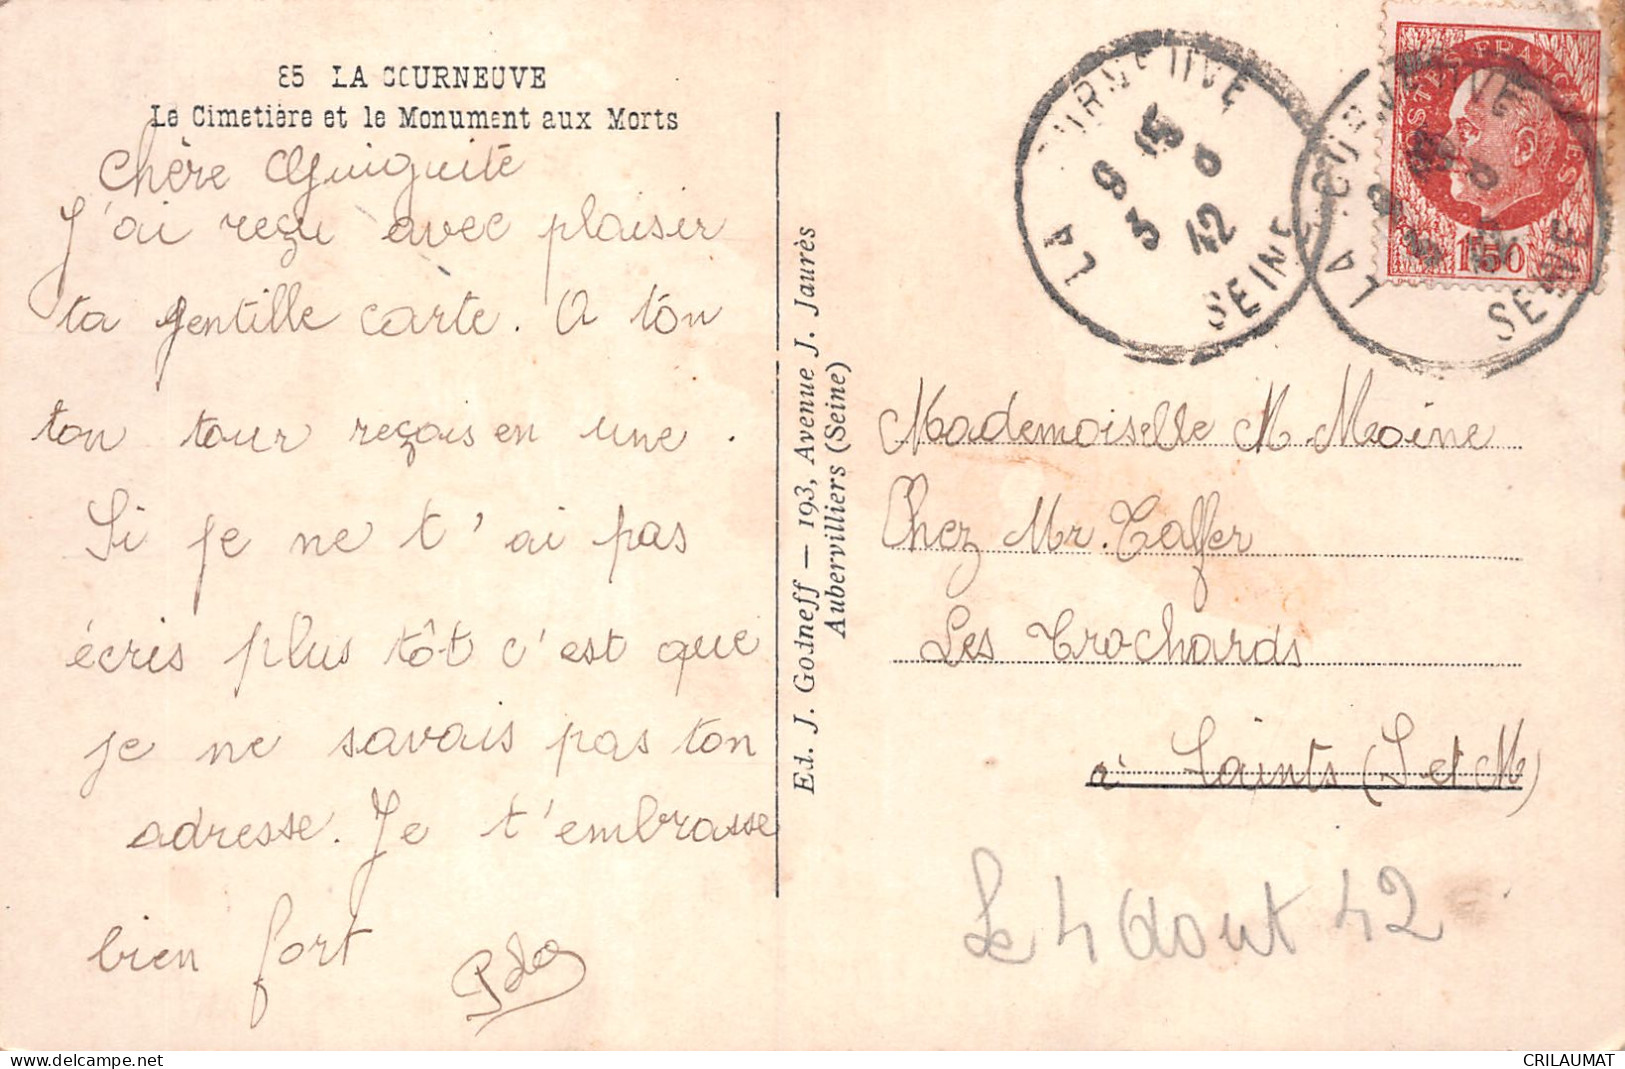 85 LA COURNEUVE
Le Cimetière et le Monument aux Morts
Chère Guiguite
J'ai reçu avec plaisir
ta gentille carte. A ton
ton tour reçois en une.
Si je ne t'ai pas
écris plus tôt c'est que
je ne savais pas ton
adresse. Je t'embrasse
bien fort
Ed. J. Godneff — 193, Avenue J. Jaurès
Aubervilliers (Seine)
LA COURNEUVE
9 15
3 8
42
SEINE
LA COURNEUVE
SEINE
POSTES FRANÇAISES
1F50
Mademoiselle M. Moine
Chez Mr. Talfer
Les Trochards
à Saints (S et M)
Le 4 Aout 42
delcampe.net
CRILAUMAT